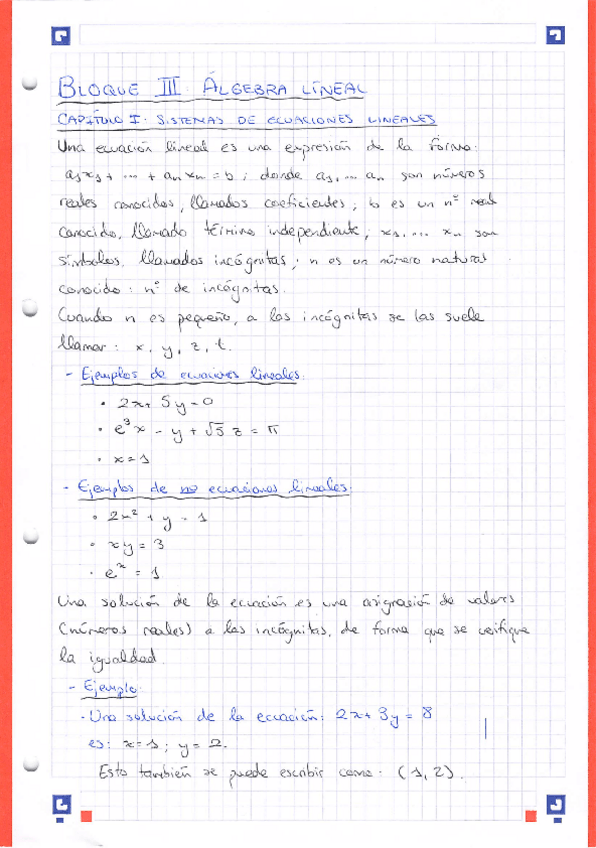 BLOQUE III. ÁLGEBRA LINEAL
CAPÍTULO I: SISTEMAS DE ECUACIONES LINEALES
Una ecuación lineal es una expresión de la forma:
a₁x₁ + ... + aₙxₙ = b ; donde a₁, ... aₙ son números
reales conocidos, llamados coeficientes; b es un nº real
conocido, llamado término independiente; x₁, ... xₙ son
símbolos, llamados incógnitas; n es un número natural
conocido: nº de incógnitas.
Cuando n es pequeño, a las incógnitas se las suele
llamar: x, y, z, t.
- Ejemplos de ecuaciones lineales:
• 2x + 5y = 0
• e³x - y + √5 z = π
• x = 1
- Ejemplos de no ecuaciones lineales:
• 2x² + y = 1
• xy = 3
• eˣ = 1
Una solución de la ecuación es una asignación de valores
(números reales) a las incógnitas, de forma que se verifique
la igualdad.
- Ejemplo:
· Una solución de la ecuación: 2x + 3y = 8
es: x = 1 ; y = 2.
Esto también se puede escribir como: (1, 2).